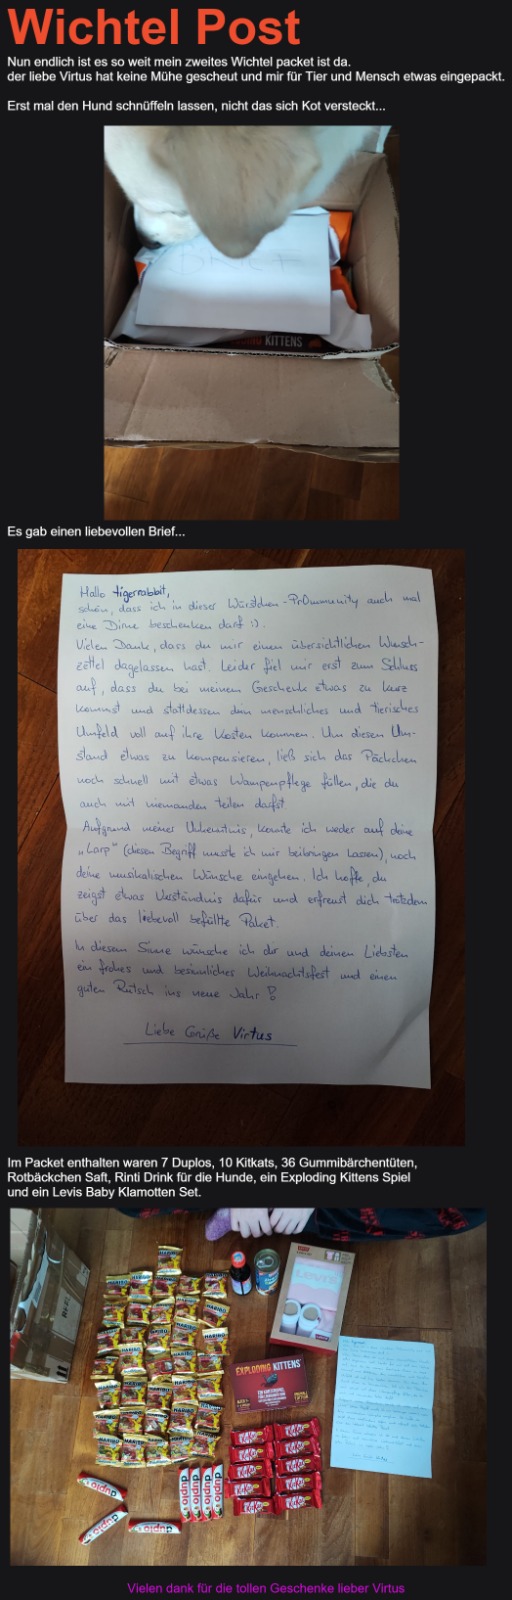 Wichtel Post
Nun endlich ist es so weit mein zweites Wichtel packet ist da.
der liebe Virtus hat keine Mühe gescheut und mir für Tier und Mensch etwas eingepackt.
Erst mal den Hund schnüffeln lassen, nicht das sich Kot versteckt...
BRIEF
KITTENS
Es gab einen liebevollen Brief...
Hallo tigerrabbit,
schön, dass ich in dieser Würstchen-Pr0mmunity auch mal
eine Dirne beschenken darf :).
Vielen Dank, dass du mir einen übersichtlichen Wunsch-
zettel dagelassen hast. Leider fiel mir erst zum Schluss
auf, dass du bei meinem Geschenk etwas zu kurz
kommst und stattdessen dein menschliches und tierisches
Umfeld voll auf ihre Kosten kommen. Um diesen Um-
stand etwas zu kompensieren, ließ sich das Päckchen
noch schnell mit etwas Wampenpflege füllen, die du
auch mit niemanden teilen darfst
Aufgrund meiner Unkenntnis, konnte ich weder auf deine
„Larp" (diesen Begriff musste ich mir beibringen lassen), noch
deine musikalischen Wünsche eingehen. Ich hoffe, du
zeigst etwas Verständnis dafür und erfreust dich trotzdem
über das liebevoll befüllte Paket.
In diesem Sinne wünsche ich dir und deinen Liebsten
ein frohes und besinnliches Weihnachtsfest und einen
guten Rutsch ins neue Jahr!
Liebe Grüße Virtus
Im Packet enthalten waren 7 Duplos, 10 Kitkats, 36 Gummibärchentüten,
Rotbäckchen Saft, Rinti Drink für die Hunde, ein Exploding Kittens Spiel
und ein Levis Baby Klamotten Set.
HARIBO
LEVI'S
EXPLODING KITTENS
KitKat
duplo
Vielen dank für die tollen Geschenke lieber Virtus